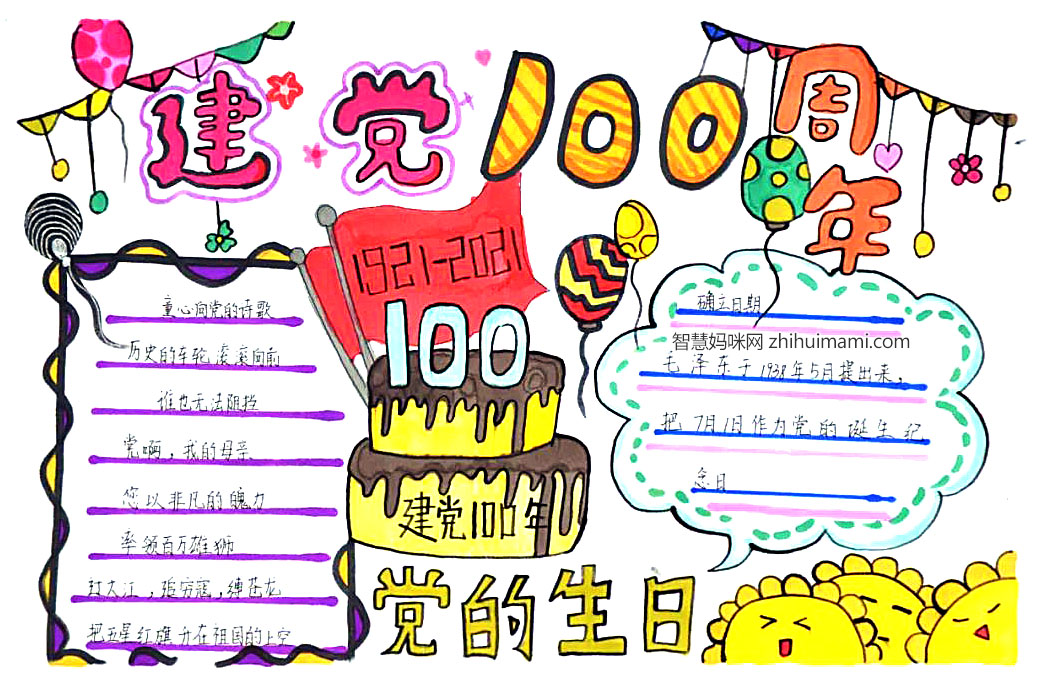 建党100周年
1921-2021
100
建党100年
党的生日
童心向党的诗歌
历史的车轮滚滚向前
谁也无法阻挡
党啊,我的母亲
您以非凡的魄力
率领百万雄狮
过大江,追穷寇,缚苍龙
把五星红旗升在祖国的上空
确立日期
智慧妈咪网 zhihuimami.com
毛泽东于1938年5月提出来,
把7月1日作为党的诞生纪
念日